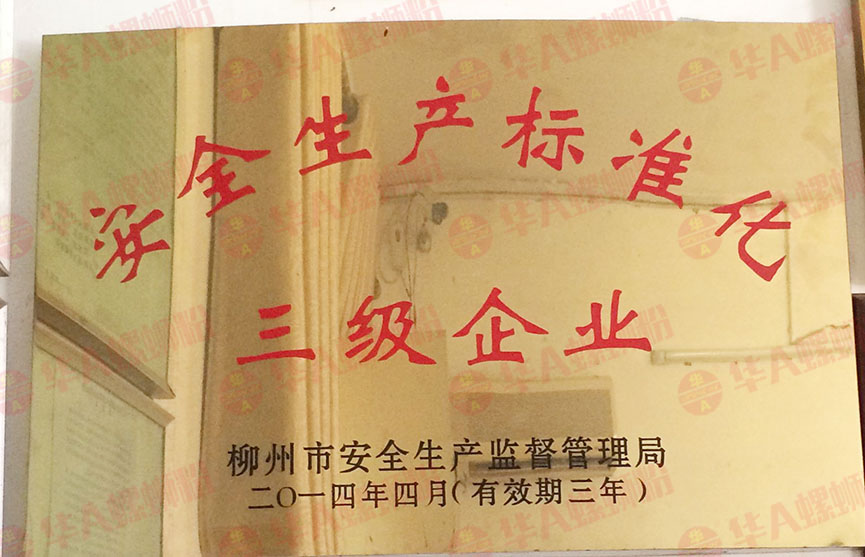 安全生产标准化
三级企业
柳州市安全生产监督管理局
二〇一四年四月(有效期三年)
华A螺蛳粉